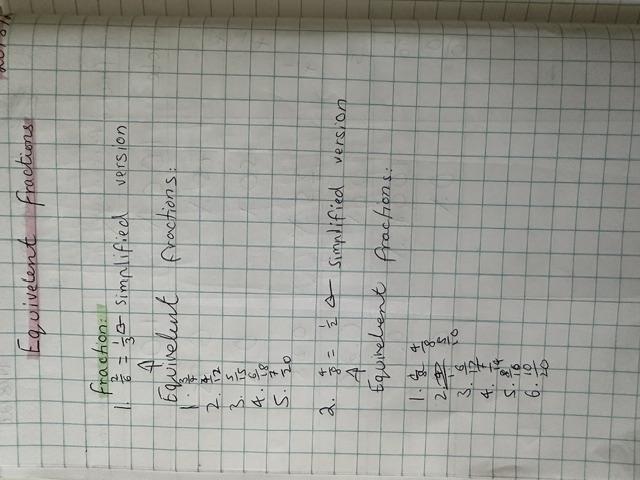 Equivelent fractions
fraction:
1. 2/6 = 1/3 ← simplified version
↑
Equivelent fractions:
1.
2. 4/12
3. 5/15
4. 6/18
5. 7/20
2. 4/8 = 1/2 ← simplified version
↑
Equivelent fractions:
1. 4/8
2. 5/10
3. 6/12
4. 7/14
5. 8/16
6. 10/20